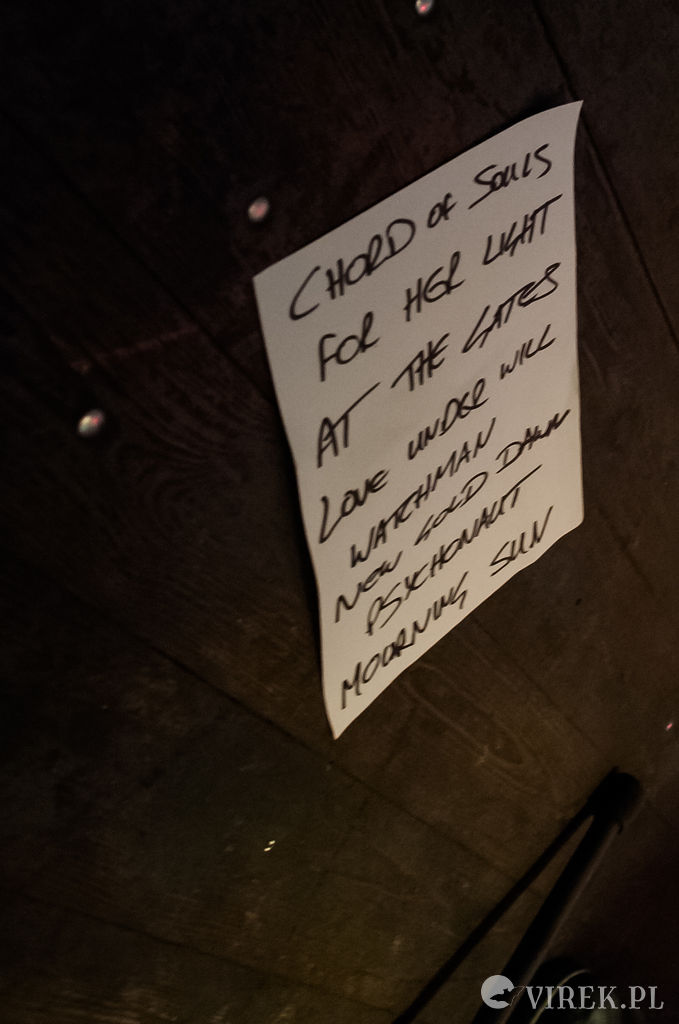 CHORD OF SOULS
FOR HER LIGHT
AT THE GATES
LOVE UNDER WILL
WATCHMAN
NEW GOLD DAWN
PSYCHONAUT
MOURNING SUN
VIREK.PL